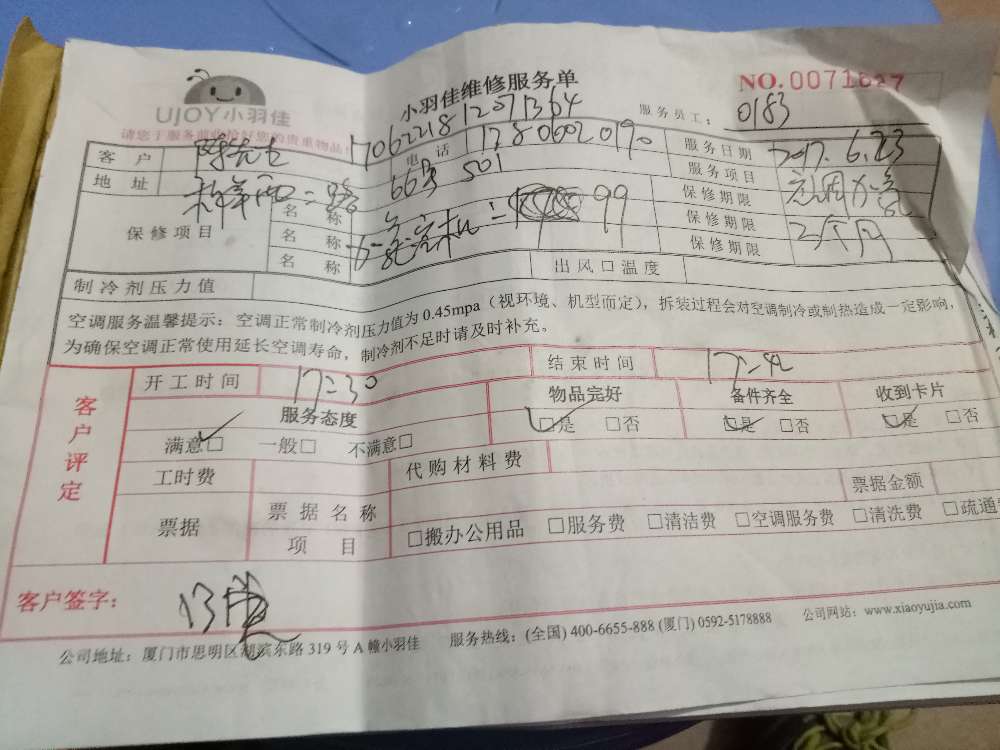 小羽佳维修服务单
NO. 0071627
UJOY小羽佳
请您于服务前收拾好您的贵重物品!
1706221812071364
服务员工： 0183
客户 陈先生 电话 1780602019 服务日期 2017.6.23
地址 祥 西二路 66号 501 服务项目 空调加氟
保修项目 名称 保修期限
名称 99 保修期限 2个月
名称 保修期限
制冷剂压力值 出风口温度
空调服务温馨提示：空调正常制冷剂压力值为 0.45mpa（视环境、机型而定），拆装过程会对空调制冷或制热造成一定影响，
为确保空调正常使用延长空调寿命，制冷剂不足时请及时补充。
客户评定
开工时间 17:30 结束时间
服务态度 物品完好 备件齐全 收到卡片
满意□ 一般□ 不满意□ □是 □否 □是 □否 □是 □否
工时费 代购材料费
票据 票据名称 票据金额
项目 □搬办公用品 □服务费 □清洁费 □空调服务费 □清洗费 □疏通
客户签字：
公司地址：厦门市思明区湖滨东路 319 号 A 幢小羽佳 服务热线：(全国) 400-6655-888 (厦门) 0592-5178888 公司网站：www.xiaoyujia.com